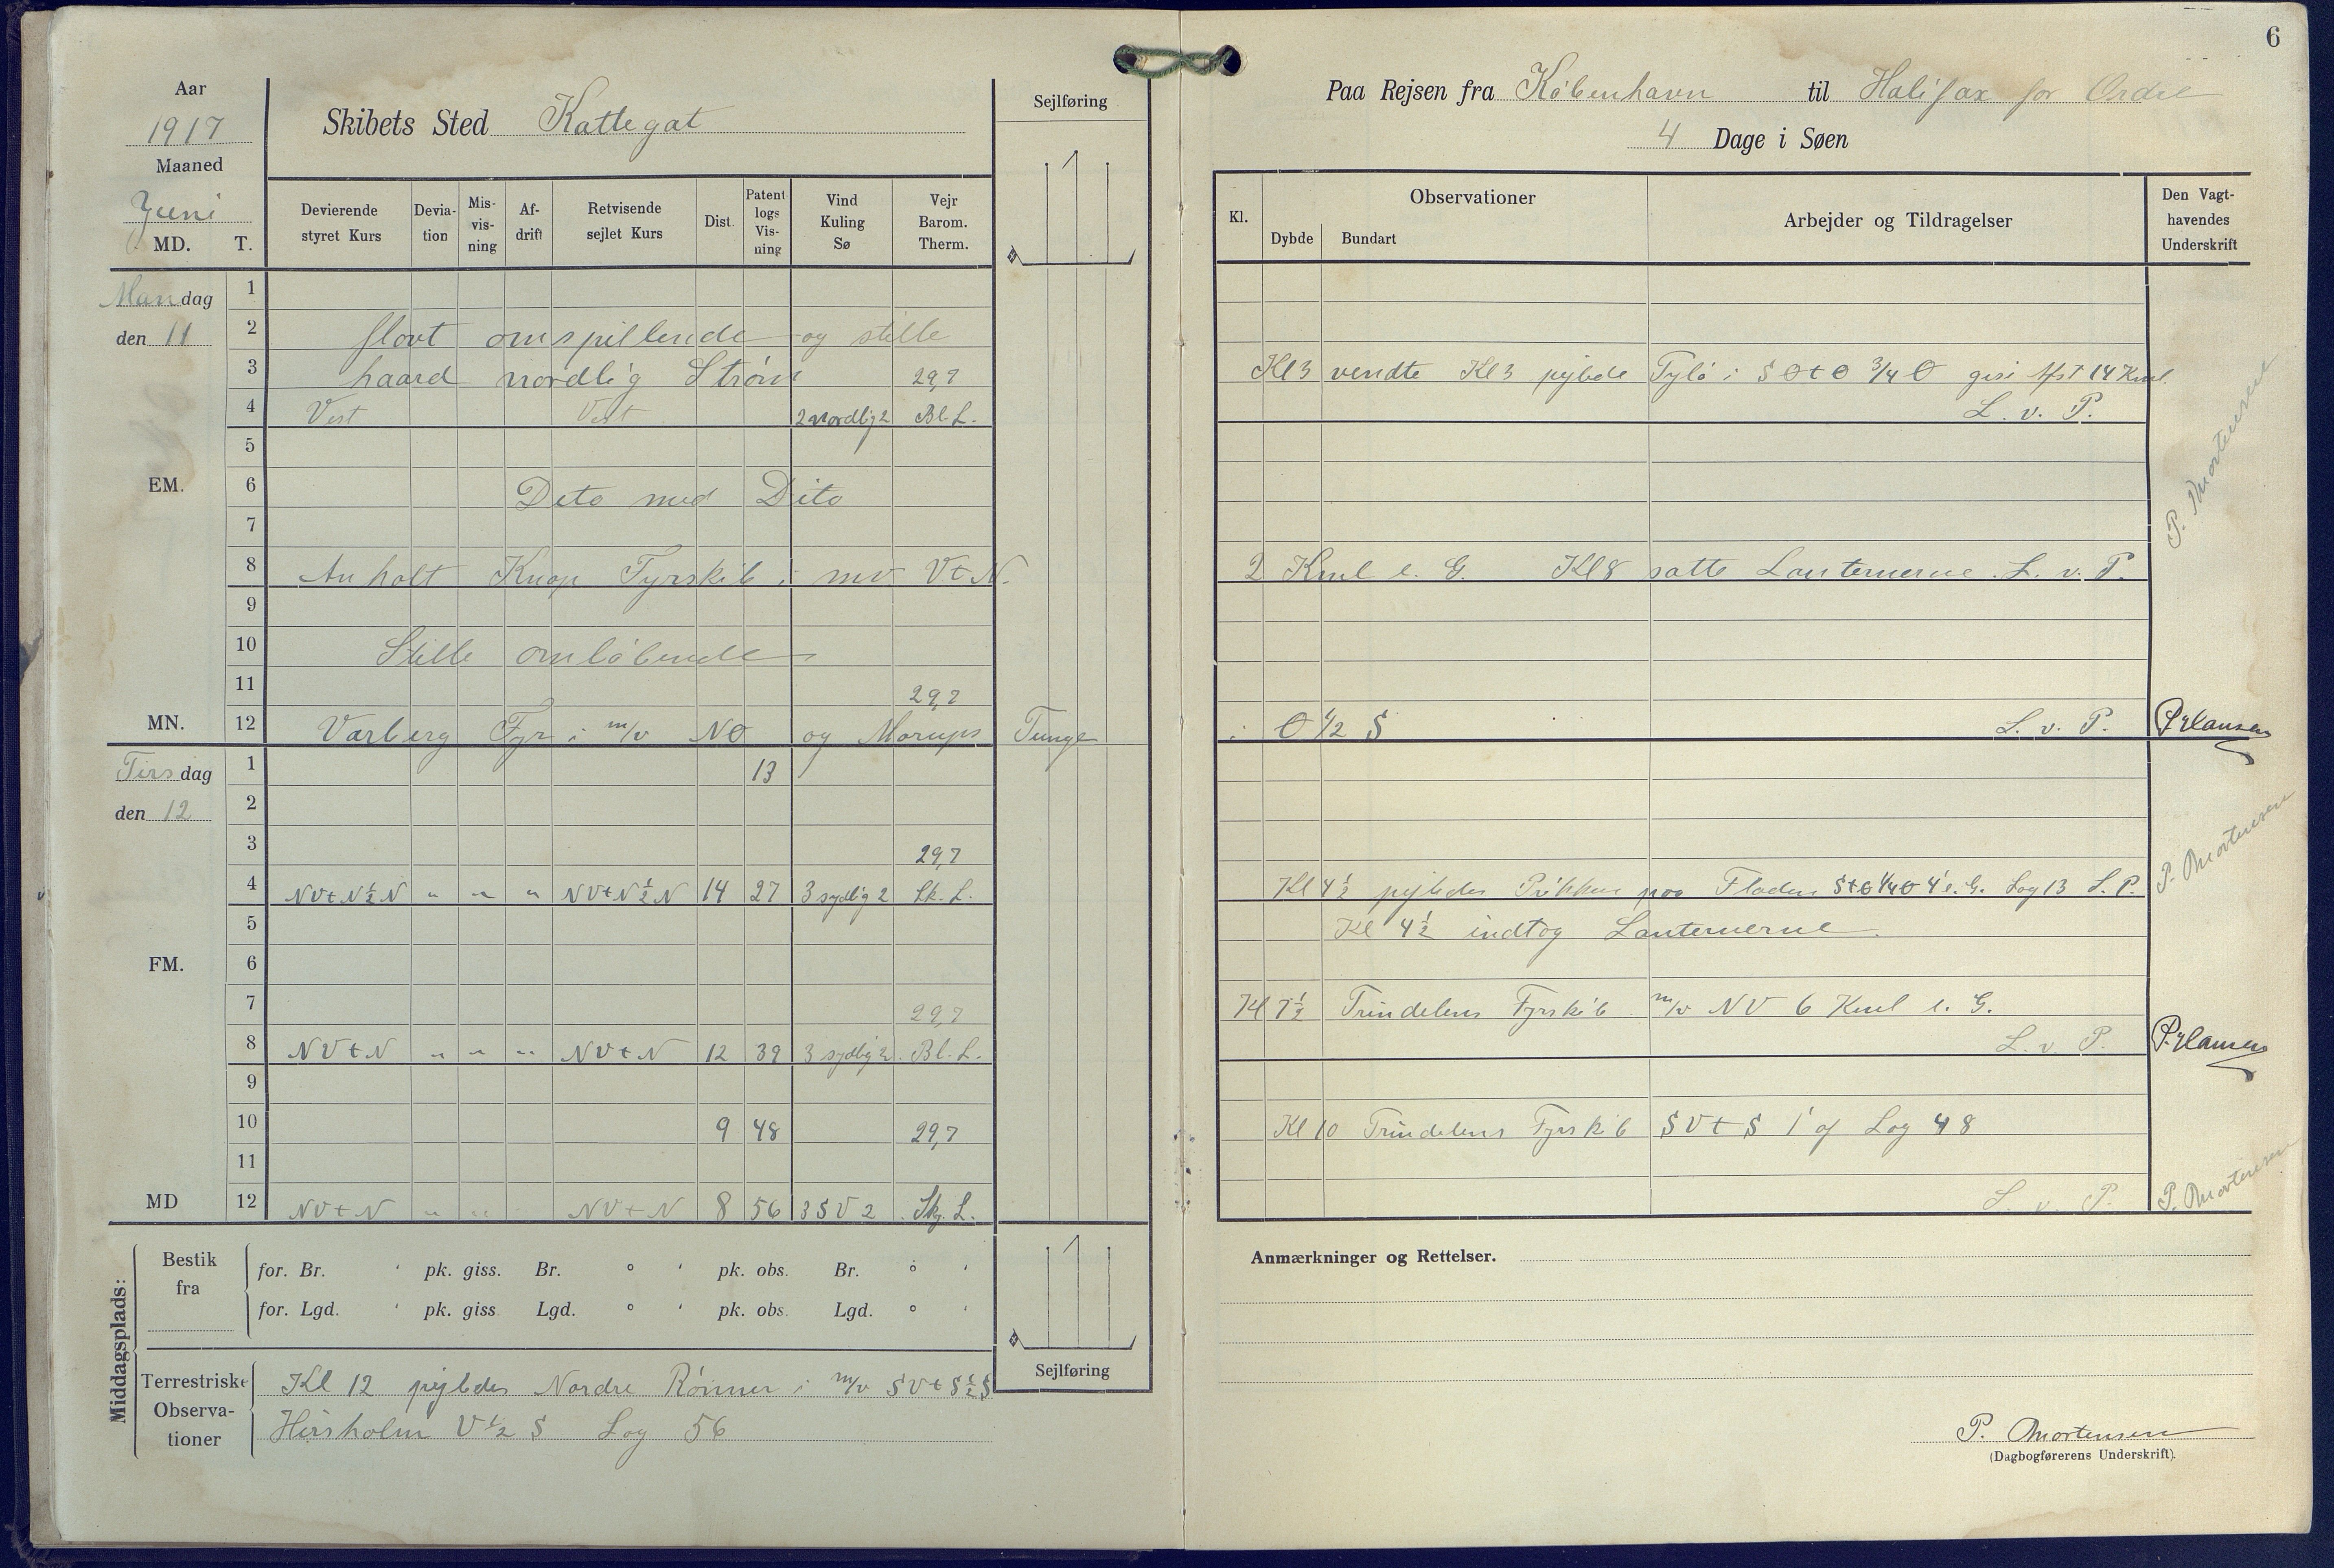 6
Aar
1917
Maaned
Juni
MD. T.
Skibets Sted Kattegat
Sejlføring
Devierende styret Kurs
Devia-tion
Mis-vis-ning
Af-drift
Retvisende sejlet Kurs
Dist.
Patent logs Vis-ning
Vind Kuling Sø
Vejr Barom. Therm.
Mandag 1
den 11 2 flovt omspillende og stille
3 haard nordlig Strøm 29,7
4 Vest Vest 2 nordlig 2 Bl. L.
5
EM. 6 Deto med Dito
7
8 Anholt Knop Fyrskib i mv V t N.
9
10 Stille omløbende
11 29,7
MN. 12 Varberg Fyr i m/v NO og Morups Tunge
Tirsdag 1 13
den 12 2
3 29,7
4 NVtN½N " " " NVtN½N 14 27 3 sydlig 2 Sk. L.
5
FM. 6
7 29,7
8 NVtN " " " NVtN 12 39 3 sydlig 2 Bl. L.
9
10 9 48 29,7
11
MD 12 NVtN " " NVtN 8 56 3 SV 2 Sky. L.
Middagsplads:
Bestik fra
for. Br. ' pk. giss. Br. ° ' pk. obs. Br. ° '
for. Lgd. ' pk. giss Lgd. ° ' pk. obs. Lgd. ° '
Terrestriske Observa-tioner
Kl 12 pejledes Nordre Rönner i m/v SVtS½S
Hirsholm V½S Log 56
Sejlføring
Paa Rejsen fra København til Halifax for Ordre
4 Dage i Søen
Kl.
Observationer
Dybde Bundart
Arbejder og Tildragelser
Den Vagt-havendes Underskrift
Kl 3 vendte Kl 3 pejlede Tylö i SOtO 3/4 O gisi Afst 14 Kml.
L. v. P.
P. Mortensen
2 Kml e. G. Kl 8 satte Lanternerne. L. v. P.
i O ½ S L. v. P. P Hansen
Kl 4½ pejledes Prikken paa Fladen StO¼O 4' e. G. Log 13 L. P. P. Mortensen
Kl 4½ indtog Lanternerne.
Kl 7½ Trindelens Fyrskib m/v NV 6 Kml e. G.
L. v. P. P. Hansen
Kl 10 Trindelens Fyrskib SVtS 1' af Log 48
L. v. P. P. Mortensen
Anmærkninger og Rettelser.
P. Mortensen
(Dagbogførerens Underskrift).